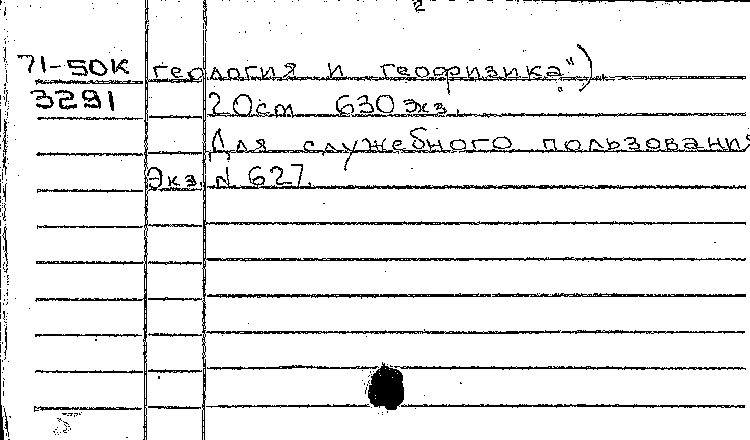 2
71-50К геология и геофизика").
3291 20см 630 экз.
Для служебного пользования
Экз. N 627.